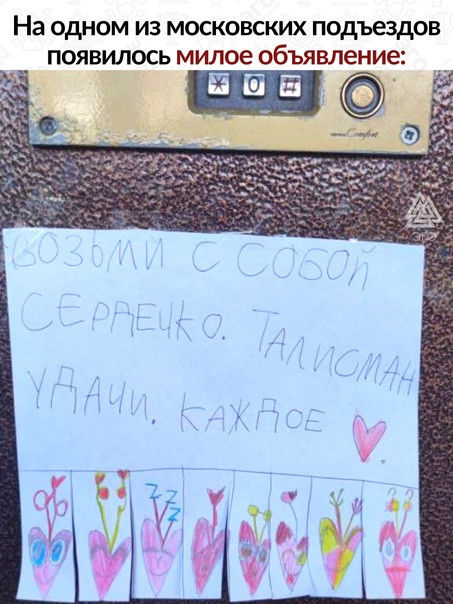 На одном из московских подъездов
появилось милое объявление:
* 0 #
ВОЗЬМИ С СОБОЙ
СЕРДЕЧКО. ТАЛИСМАН
УДАЧИ. КАЖДОЕ
Z Z
Z Z